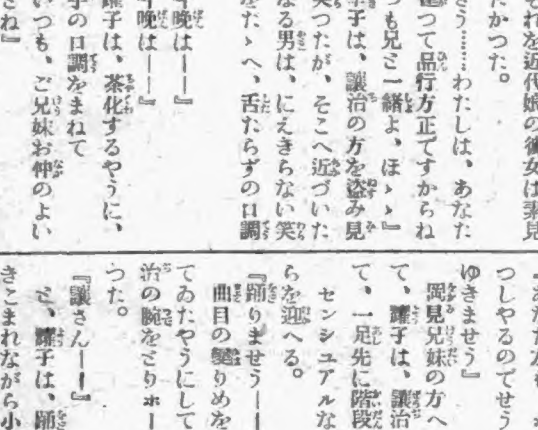 それを近代娘の彼女は素見
たかつた。
さう……わたしは、あなた
つて品行方正ですからね
つも兄と一緒よ、ほゝゝ』
子は、讓治の方を盗み見
笑つたが、そこへ近づいた
なる男は、にえきらない笑
をたゝへ、舌たらずの口調
晩は――』
晩は――』
躍子は、茶化するやうに、
手の口調をまねて
いつも、ご兄妹お仲のよい
さね』
つしやるのでせう
ゆきませう』
岡見兄妹の方へ
て、躍子は、讓治
て、一足先に階段
センシユアルな
らを迎へる。
『踊りませう――
曲目の變りめを
てゐたやうにして
治の腕をとりホー
つた。
『讓さん――』
と、躍子は、踊
きこまれながら小